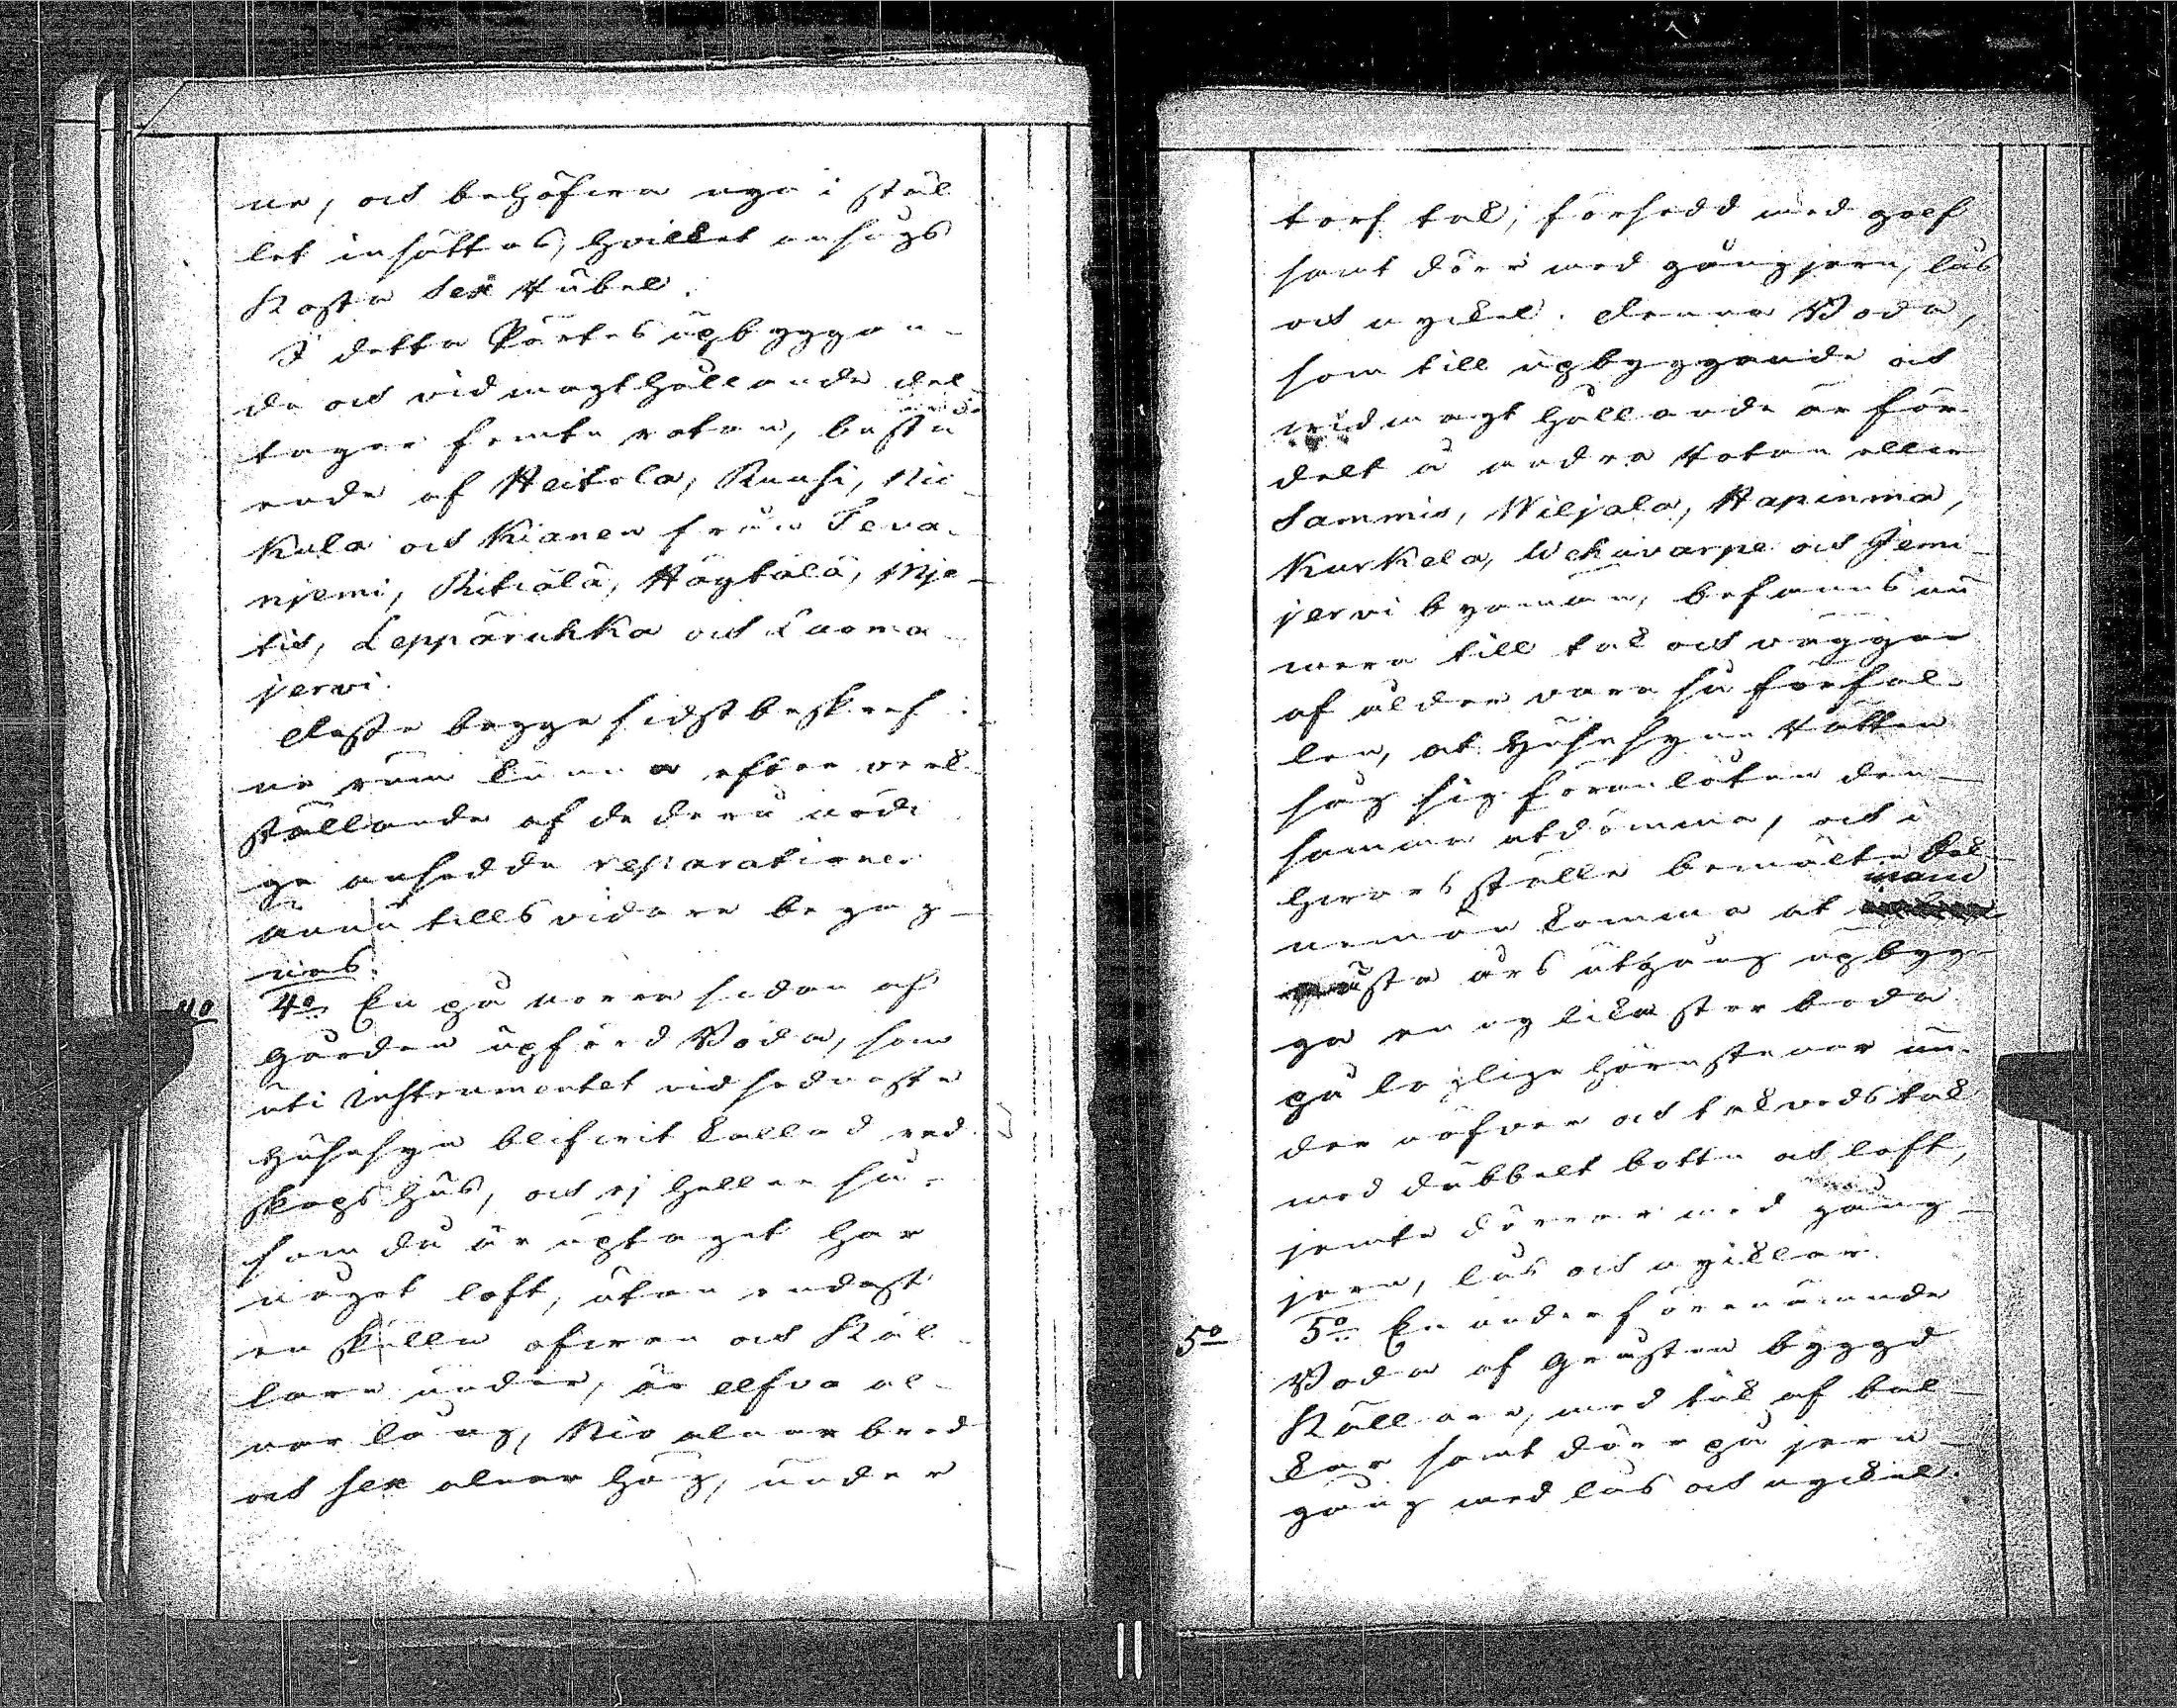 ne, och behöfwa nya i stäl-
let insättas, hvilket ansågs
Kosta Sex Rubel.
I detta Pörtes upbyggan-
de och vidmagthållande del-
tager femte rotan, bestå-
ende af Heitola, Ruuhi, Nii-
kula och Kianen från Teva-
njemi, Ritiälä, Häytälä, Mje-
tis, Leppäruhka och Laama-
jervi.
Desse begge sidst beskref-
ne rum kunna efter verk-
ställande af de dera nödi-
ge ansedde reparationer
ännu tillsvidare begag-
nas.
4º
4º En på norra sidan af
gården upförd Boda, som
uti Instrumentet vid sednaste
Husesyn blifwit kallad red-
skapshus, och ej heller så-
som då är uptaget har
något loft, utan endast
en skulle ofwan och Käl-
lare under, är ellfva al-
nar lång, Nio alnar bred
och sex alnar hög, under
torf tak, försedd med golf
samt dörr med gångjern, lås
och nyckel. Denna Boda,
som till upbyggande och
widmagthållande är för-
delt å andra Rotan eller
Sammis, Wiljala, Hapinma,
Kurkela, Uckavarpe och Jemi-
jervi byamän, befanns nu-
mera till tak och väggar
af ålder vara så förfal-
len, at Husesyns Rätten
såg sig föranlåten den-
samma utdömma, och i
hvars ställe bemälte Bol-
nemän komma at innom
nästa års utgång upbyg-
ga en ny lika stor boda
på loflige hörnstenar un-
der näfver och takvedstak
med dubbelt botten och loft,
jemte dörrar med gång-
jern, lås och nycklar.
5º
5º En under förenämnde
Boda af Gråsten byggd
Källare, med tak af bal-
kar samt dörr på jern-
gång med lås och nyckel.